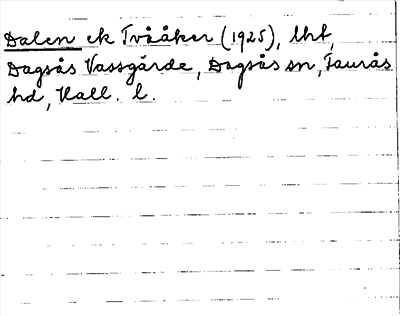 Dalen ek Tvååker (1925), lht,
Dagsås Vassgårde, Dagsås sn, Faurås
hd, Hall. l.